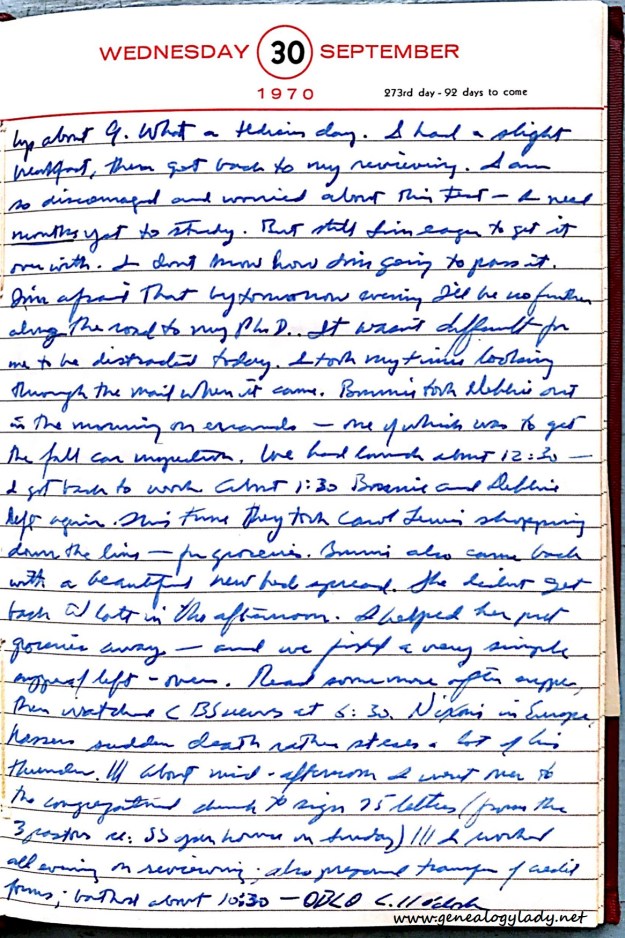 WEDNESDAY 30 SEPTEMBER
1970 273rd day - 92 days to come
Up about 9. What a tedious day. I had a slight
breakfast, then got back to my reviewing. I am
so discouraged and worried about this test — I need
months yet to study. But still I'm eager to get it
over with. I don't know how I'm going to pass it.
I'm afraid that by tomorrow evening I'll be no further
along the road to my Ph.D.. It wasn't difficult for
me to be distracted today. I took my time looking
through the mail when it came. Bonnie took Debbie out
in the morning on errands — one of which was to get
the fall car inspection. We had lunch about 12:30 —
I got back to work about 1:30 Bonnie and Debbie
left again. This time they took Carol Lewis shopping
down the line — for groceries. Bonnie also came back
with a beautiful new bed spread. She didn't get
back til late in the afternoon. I helped her put
groceries away — and we fixed a very simple
supper of left-overs. Read some more after supper,
then watched CBS news at 6:30. Nixon's in Europe,
Nassers sudden death rather steals a lot of his
thunder. /// About mid-afternoon I went over to
the congregational church to sign 75 letters (from the
3 pastors re: SS open house on Sunday) /// I worked
all evening on reviewing; also prepared transfer of credit
forms; bathed about 10:30 —
www.genealogylady.net